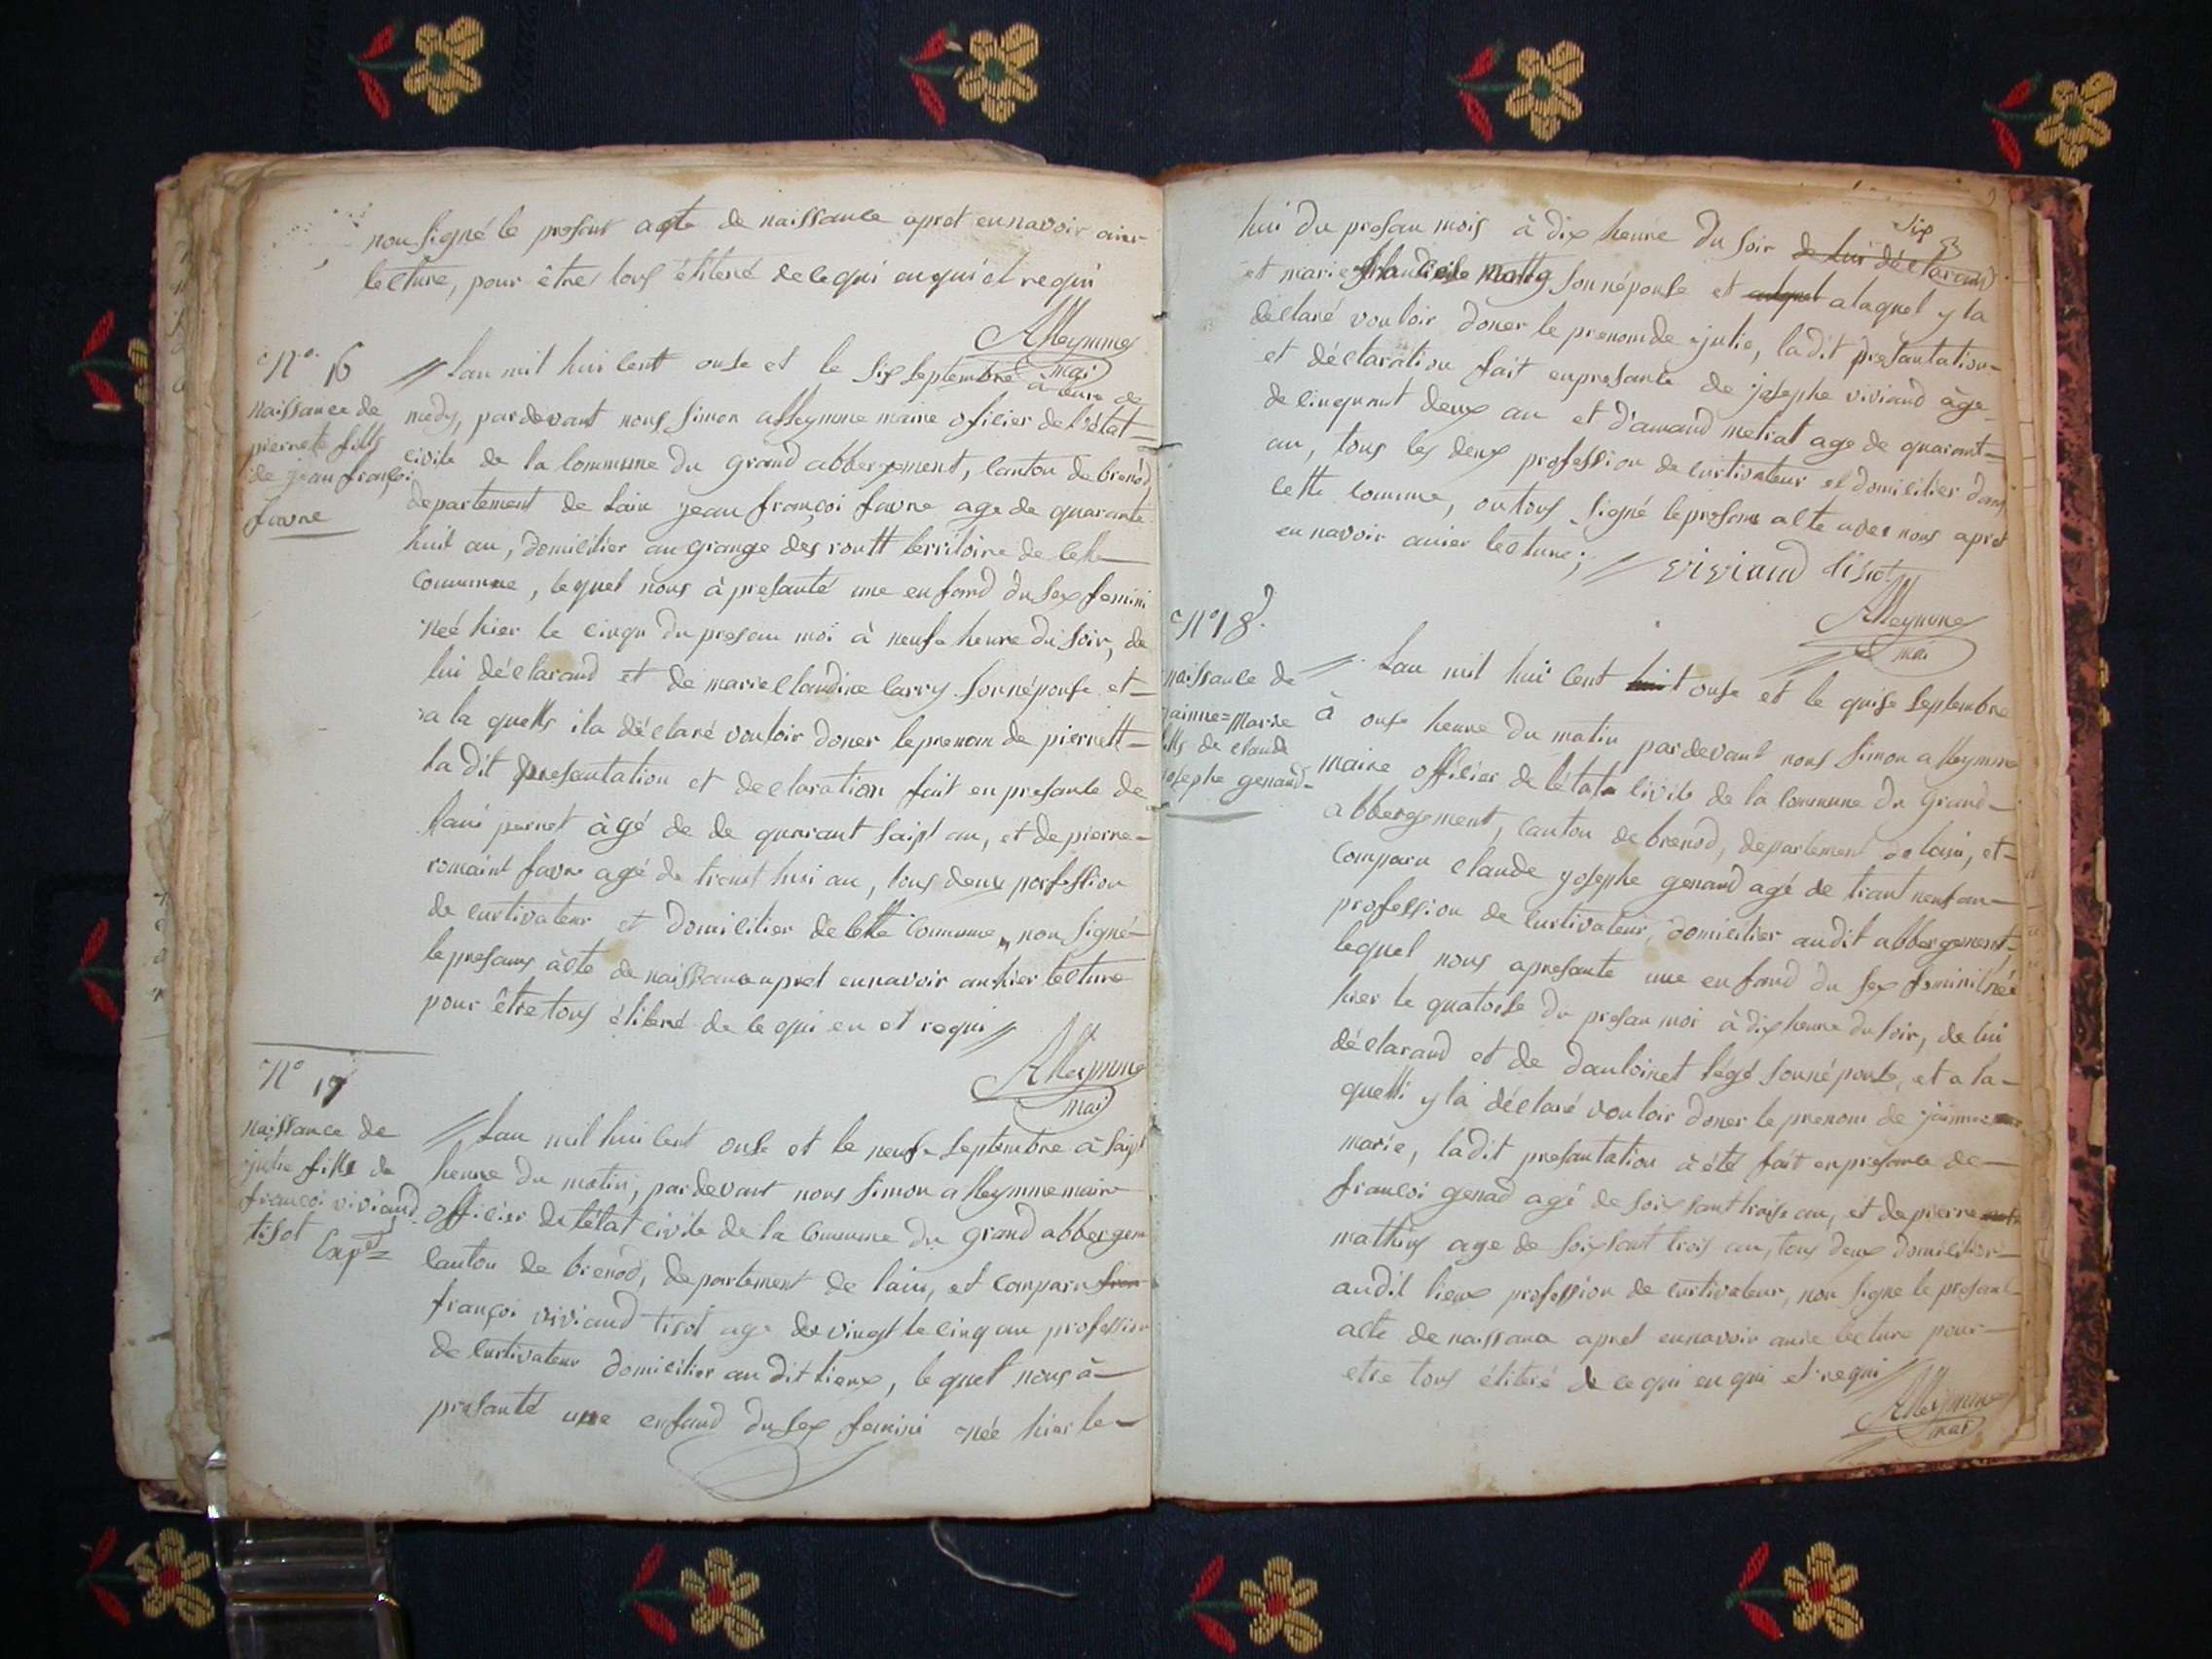 non signé le presant acte de naissance apret en navoir
lecture, pour être tous élileré de ce qui en qui et requi
Alleymme
mai
N° 16
naissance de
pierrete fills
de jean françoi
favre
Lan mil hui cent onse et le six septembre à leure de
medy, pardevant nous simon alleymme maire ofilier de l'état
civile de la commune du grand abbergement, canton de brenod
departement de lain jean françoi favre age de quarante
huit an, domicilier au grange des routt territoire de cette
Commune, lequel nous à presanté une enfand du sex femini
neé hier le cinqu du presan moi à neufe heure du soir, de
lui déclarand et de marie claudine carry sonnéponse et
a la quells ila déclaré vouloir doner le prenom de pierrett
ladit presentation et declaration fait en presante de
pernet àgé de de quarant saipt an, et de pierre
romaint favre agé de trent hui an, tous deux porfession
de curtivateur et domicilier de cette commune, non signé
le presans àcte de naissance apret ennavoir auhier lecture
pour être tous élileré de ce qui en et requi
Alleymme
mai
N° 17
naissance de
julie fills de
françoi viviand
tisot Exp
Lan mil hui cent onse et le neufe septembre à saipt
heure du matin, pardevant nous simon alleymme maire
officier de l'état civile de la commune du grand abbergem
canton de brenod, departement de lain, et comparu fran
françoi viviand tisot age de vingt te cinq an profession
de curtivateur domicilier au dit lieux, lequel nous à
presanté une enfand du sex femini née hier le
hui du presan mois à dix heure du soir de lui déclarand
six
et marie claudine matty sonnéponse et alaquel y la
déclaré vouloir doner le prenom de julie, ladit presantation
et déclaration fait en presante de josephe viviand àge
de cinquant deux an et d'amand metrat age de quarant
an, tous les deux profession de curtivateur et domicilier dans
cette comune, on tous signé le presans alte avec nous apret
en navoir auier lecture;
viviand tisot
Alleymme
mai
N° 18
naissance de
jainne=marie
fills de claude
josephe genand
Lan mil hui cent onse et le quise septembre
à onse heure du matin pardevant nous simon alleymme
maire offilier de l'état civile de la commune du grand
abbergement, canton de brenod, departement de lain, et
comparu claude yosephe genand agé de trant neuf an
profession de curtivateur, domicilier audit abbergement,
lequel nous apresante une enfand du sex feminit née
hier le quatorse du presan moi à dix heure du soir, de lui
déclarand et de sonnéponse, et a la
quelli y la déclaré vouloir doner le prenom de jainne
marie, ladit presantation à été fait enpresance de
françoi genad agé de soixsant traise an, et de pierre
mathieu age de soixsant trois an, tous deux domicilier
audit lieux profession de curtivateur, non signe le presant
alte de naissance apret ennavoir auie lecture pour
etre tous élileré de ce qui en qui et requi
Alleymme
mai